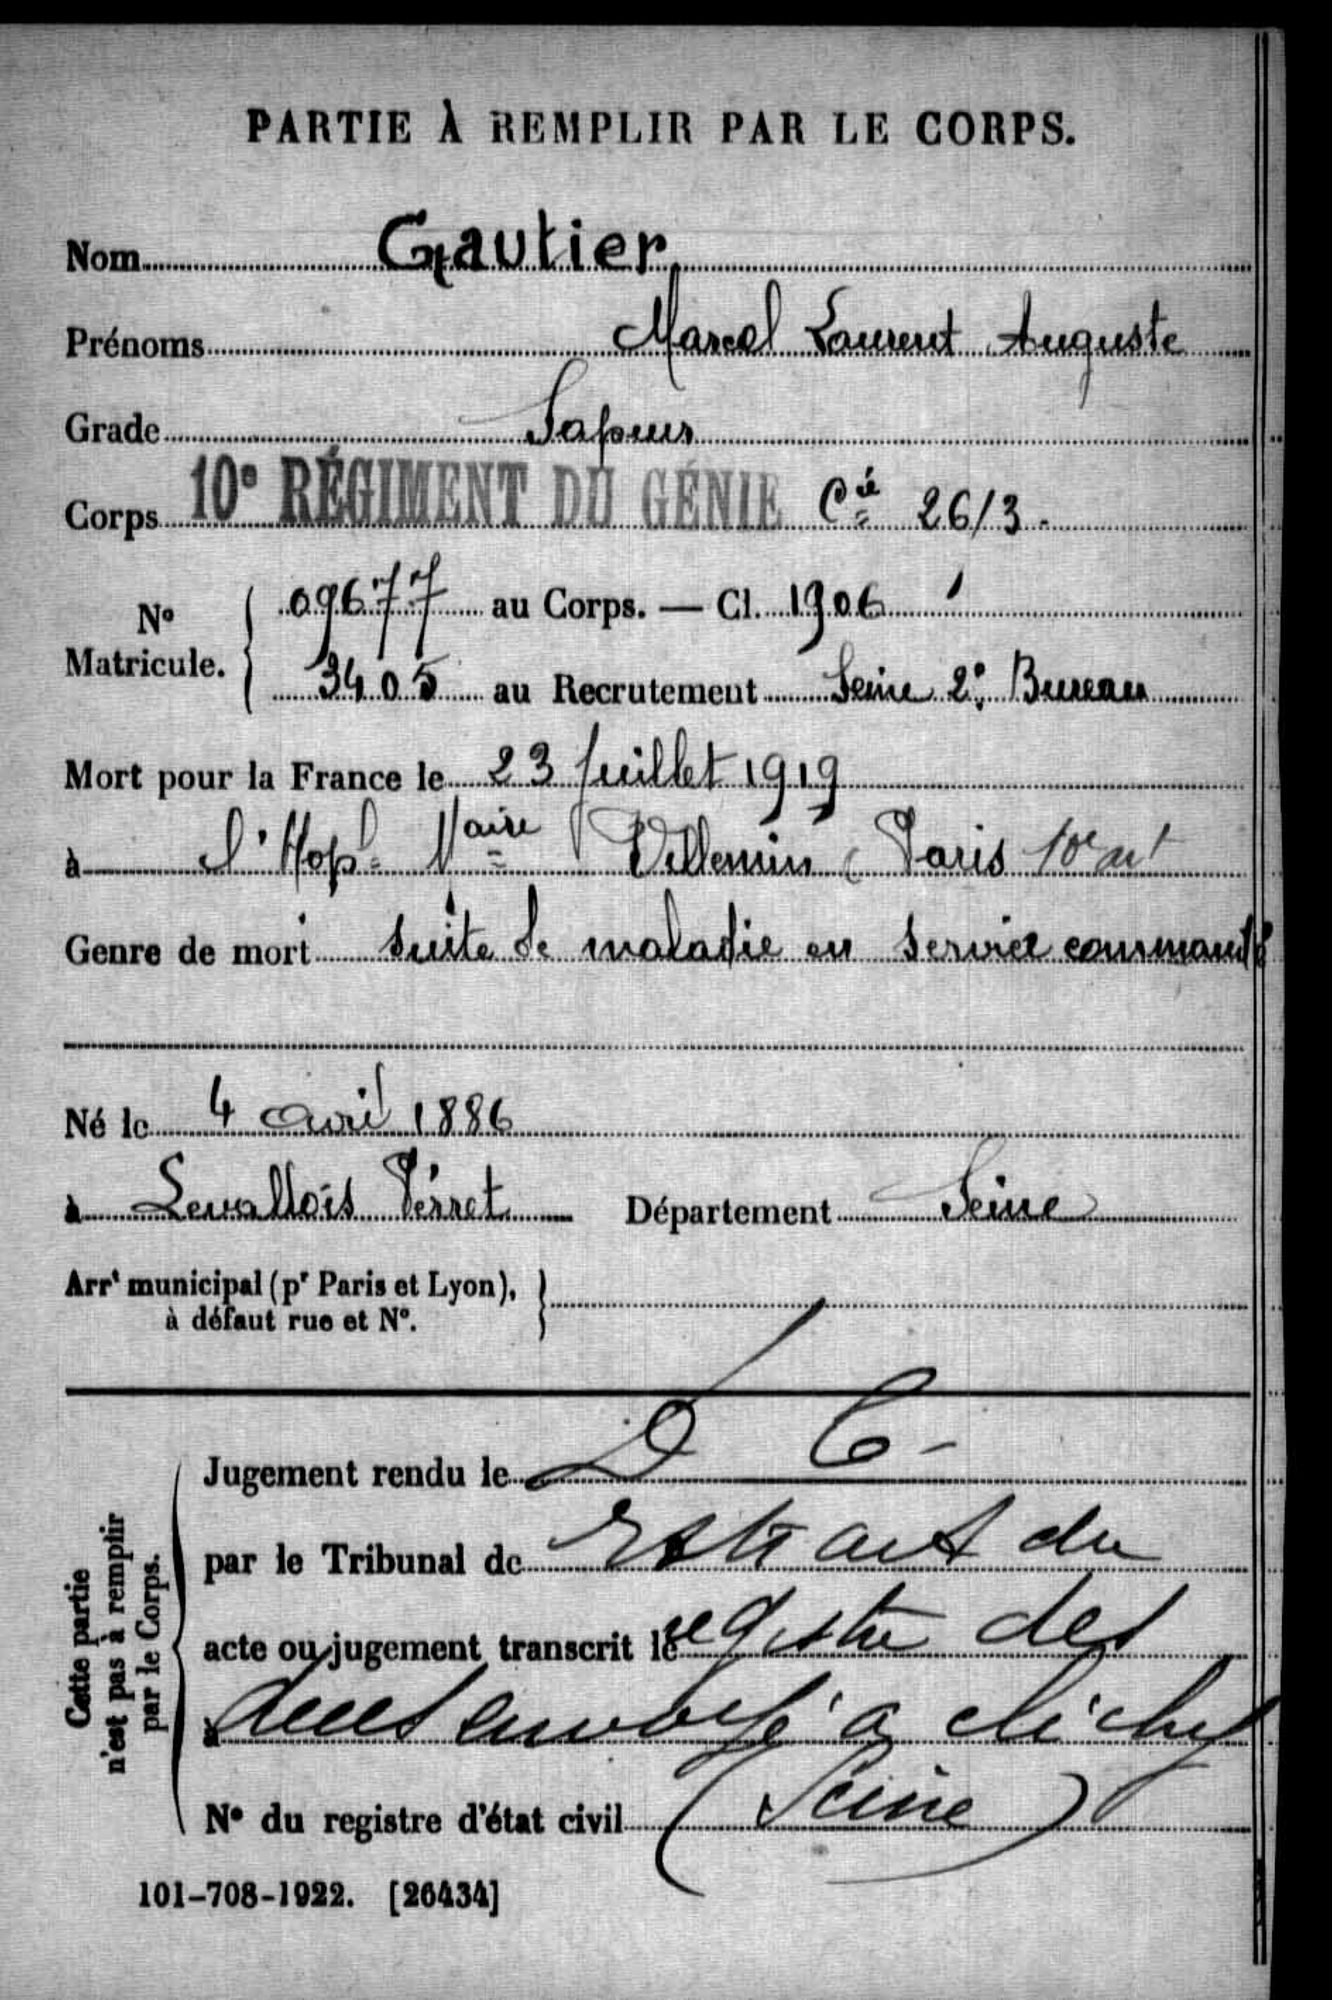 PARTIE À REMPLIR PAR LE CORPS.
Nom Gautier
Prénoms Marcel Laurent Auguste
Grade Sapeur
Corps 10e RÉGIMENT DU GÉNIE Cie 26/3.
No Matricule. { 09677 au Corps. — Cl. 1906
3405 au Recrutement Seine 2e Bureau
Mort pour la France le 23 Juillet 1919
à l'Hopl Maire Villemin Paris 10e art
Genre de mort suite de maladie en service commandé
Né le 4 avril 1886
à Levallois Perret Département Seine
Arrt municipal (pr Paris et Lyon), }
à défaut rue et No.
Cette partie n'est pas à remplir par le Corps.
Jugement rendu le D C -
par le Tribunal de Extrait du
acte ou jugement transcrit le registre des
à decès envoyé à clichy
No du registre d'état civil (Seine)
101-708-1922. [26434]